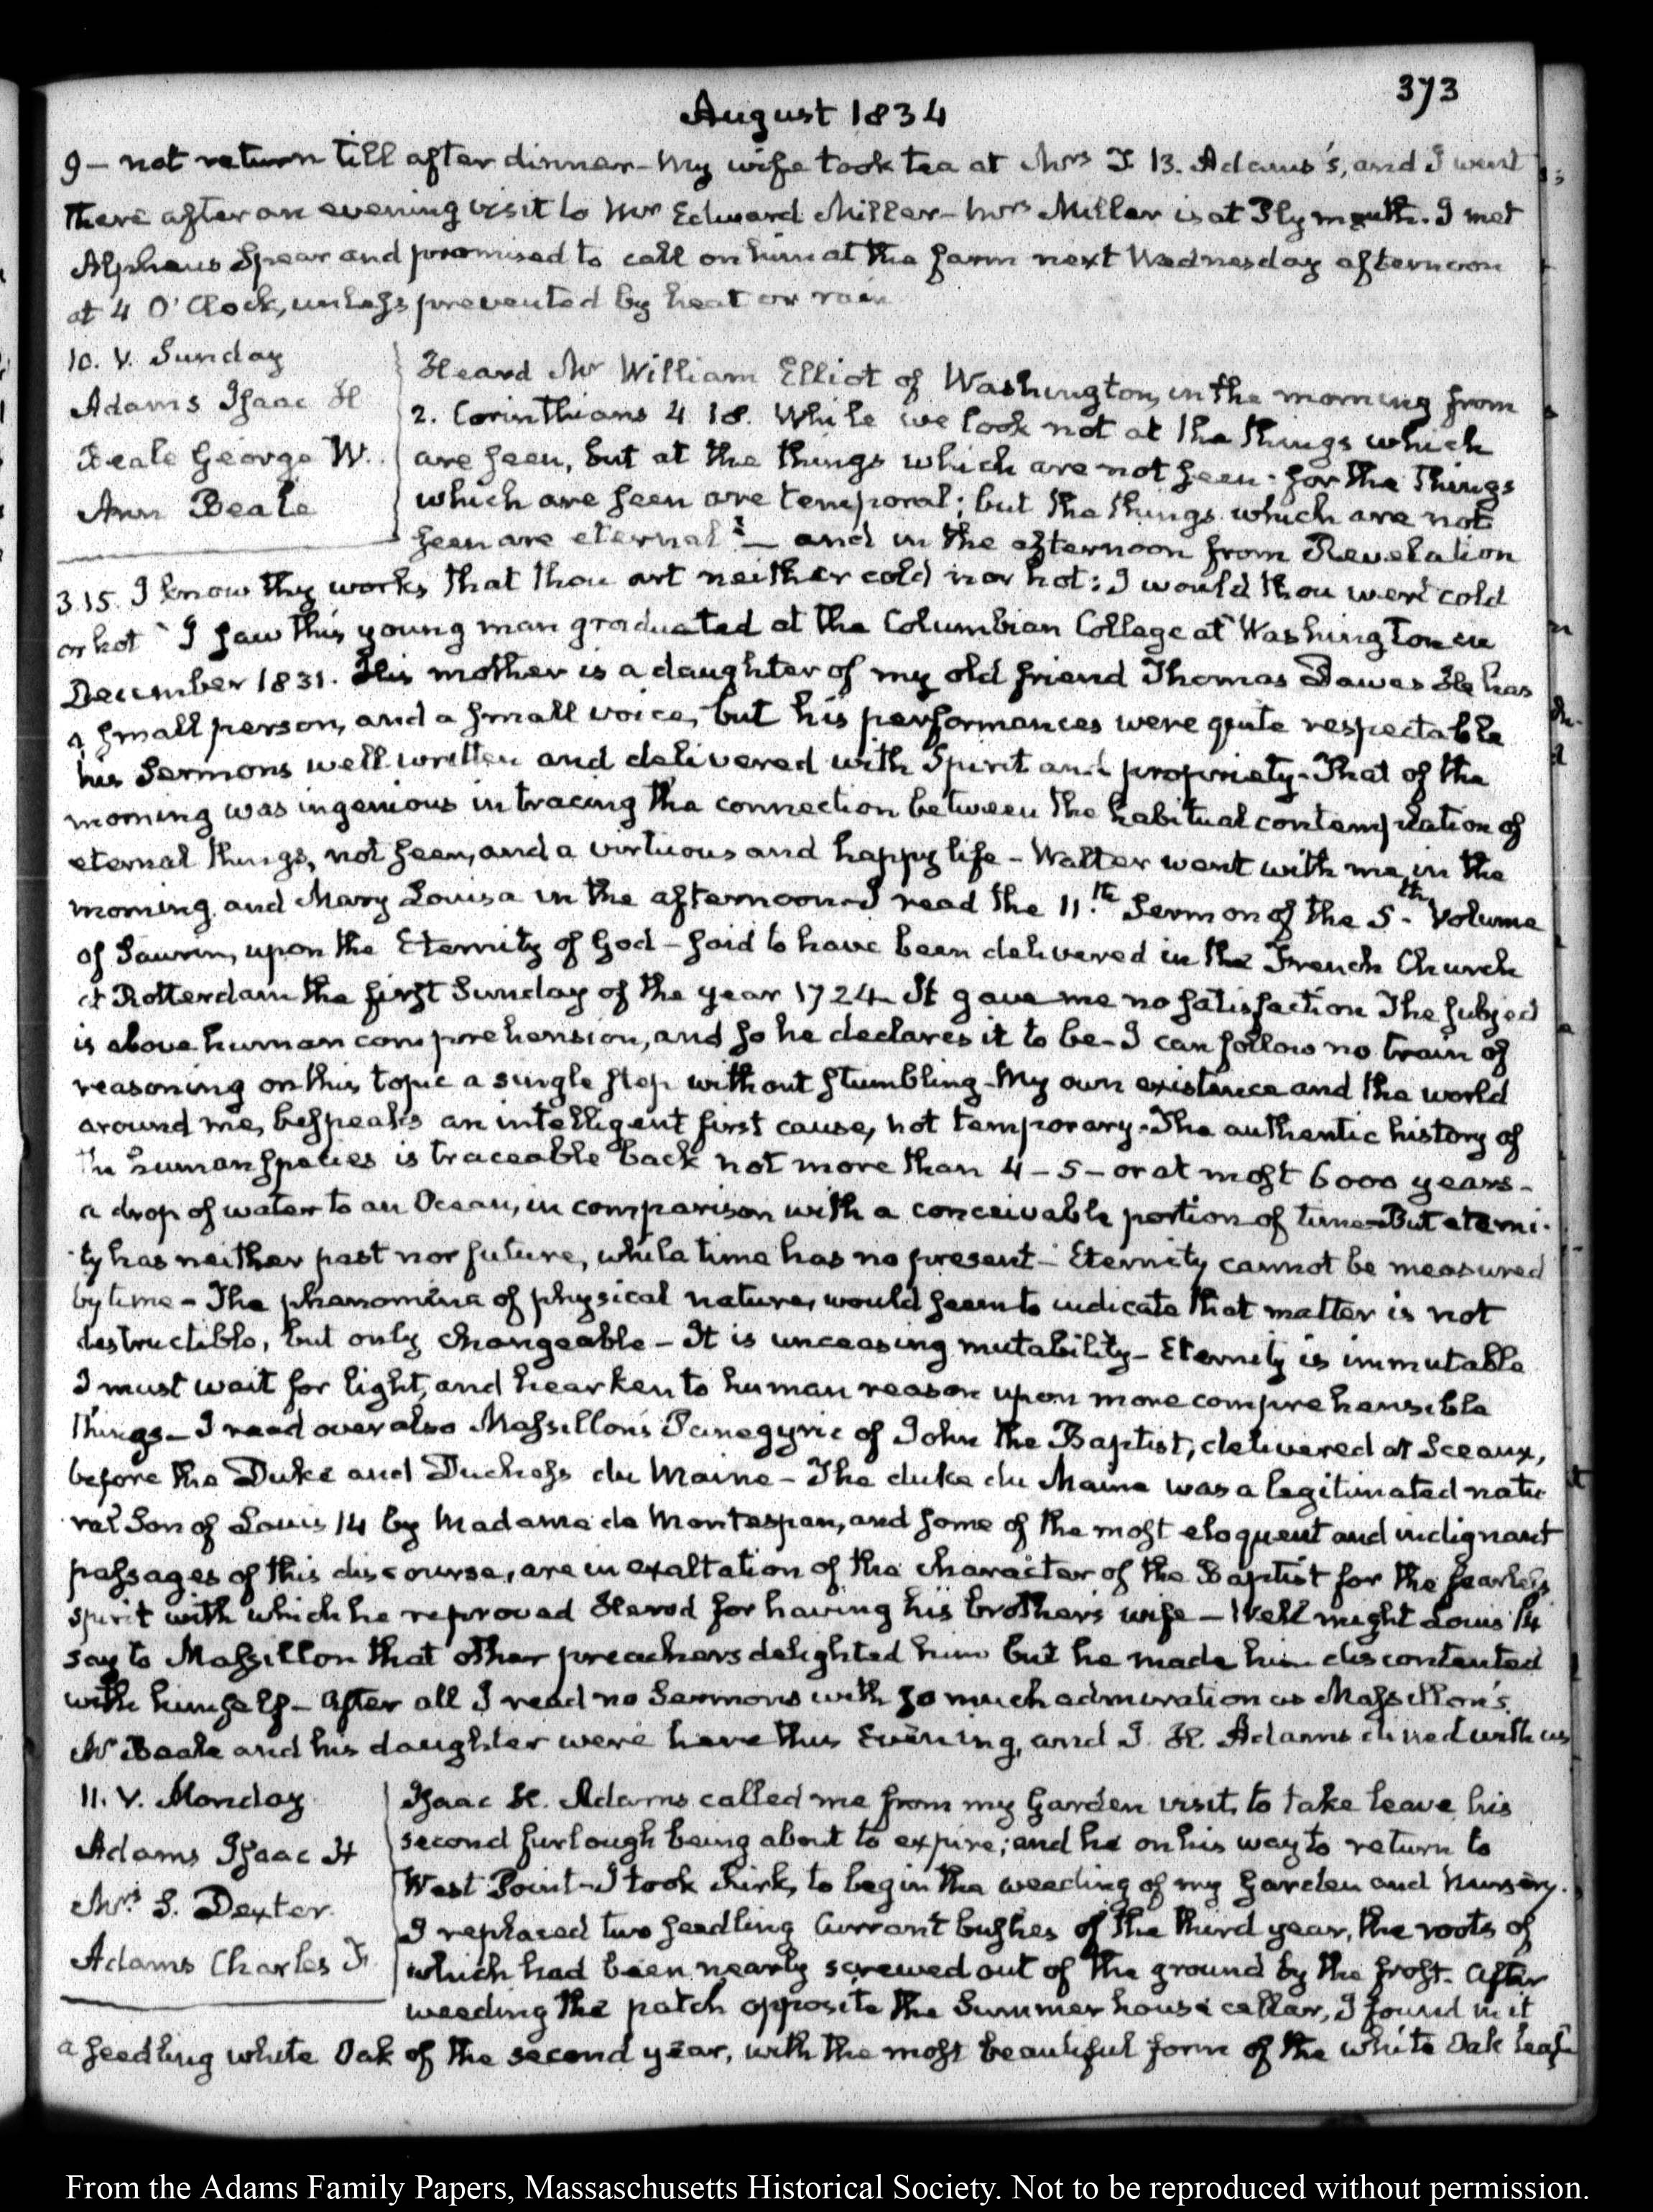 373
August 1834
9 – not return till after dinner – My wife took tea at Mrs T. B. Adams's, and I went
there after an evening visit to Mr Edward Miller – Mrs Miller is at Plymouth. I met
Alpheus Spear and promised to call on him at the farm next Wednesday afternoon
at 4 O'Clock, unless prevented by heat or rain
10. V. Sunday
Adams Isaac H
Beale George W.
Ann Beale
Heard Mr William Elliot of Washington, in the morning from
2. Corinthians 4 18. While we look not at the things which
are seen, but at the things which are not seen: for the things
which are seen are temporal; but the things which are not
seen are eternal – and in the afternoon from Revelation
3.15. I know thy works that thou art neither cold nor hot: I would thou wert cold
or hot I saw this young man graduated at the Columbian College at Washington in
December 1831. His mother is a daughter of my old friend Thomas Dawes He has
a small person, and a small voice, but his performances were quite respectable
his Sermons well written and delivered with Spirit and propriety – That of the
morning was ingenious in tracing the connection between the habitual contemplation of
eternal things, not seen, and a virtuous and happy life – Walter went with me, in the
morning and Mary Louisa in the afternoon – I read the 11.th Sermon of the 5.th Volume
of Saurin, upon the Eternity of God – said to have been delivered in the French Church
at Rotterdam the first Sunday of the year 1724 – It gave me no satisfaction The subject
is above human comprehension, and so he declares it to be – I can follow no train of
reasoning on this topic a single step without stumbling – My own existence and the world
around me, bespeaks an intelligent first cause, not temporary – The authentic history of
the human species is traceable back not more than 4 – 5 – or at most 6000 years –
a drop of water to an Ocean, in comparison with a conceivable portion of time – But eterni-
ty has neither past nor future, while time has no present – Eternity cannot be measured
by time – The phænomena of physical nature, would seem to indicate that matter is not
destructible, but only changeable – It is unceasing mutability – Eternity is immutable
I must wait for light, and hearken to human reason upon more comprehensible
things – I read over also Massillon's Panegyric of John the Baptist, delivered at Sceaux,
before the Duke and Duchess du Maine – The duke du Maine was a legitimated natu
ral Son of Louis 14 by Madame de Montespan, and some of the most eloquent and indignant
passages of this discourse, are in exaltation of the character of the Baptist for the fearless
spirit with which he reproved Herod for having his brother's wife – Well might Louis 14
say to Massillon that other preachers delighted him but he made him discontented
with himself – After all I read no Sermons with so much admiration as Massillon's.
Mr Beale and his daughter were here this Evening, and I. H. Adams dined with us
11. V. Monday
Adams Isaac H
Mrs. S. Dexter.
Adams Charles F.
Isaac H. Adams called me from my Garden visit, to take leave his
second furlough being about to expire; and he on his way to return to
West Point – I took Kirk, to begin the weeding of my Garden and Nursery.
I replaced two seedling Currant bushes of the third year, the roots of
which had been nearly screwed out of the ground by the frost. After
weeding the patch opposite the Summer house cellar, I found in it
a seedling white Oak of the second year, with the most beautiful form of the white Oak leaf
From the Adams Family Papers, Massachusetts Historical Society. Not to be reproduced without permission.